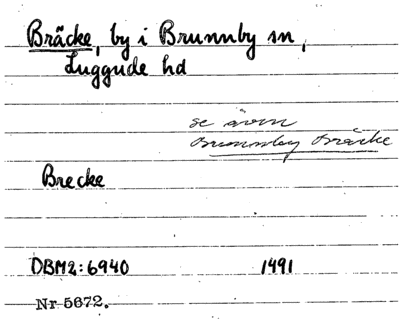 Bräcke, by i Brunnby sn,
Luggude hd
se även
Brunnby Bräcke
Brecke
DBM2:6940 1491
Nr 5672.